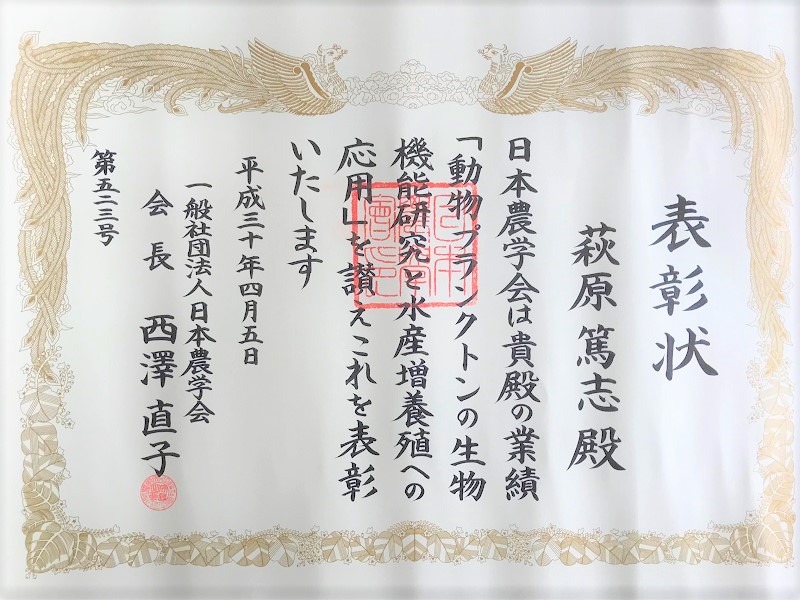 表彰状
萩原篤志殿
日本農学会は貴殿の業績
「動物プランクトンの生物
機能研究と水産増養殖への
応用」を讃えこれを表彰
いたします
平成三十年四月五日
一般社団法人日本農学会
会長 西澤直子
第五二三号